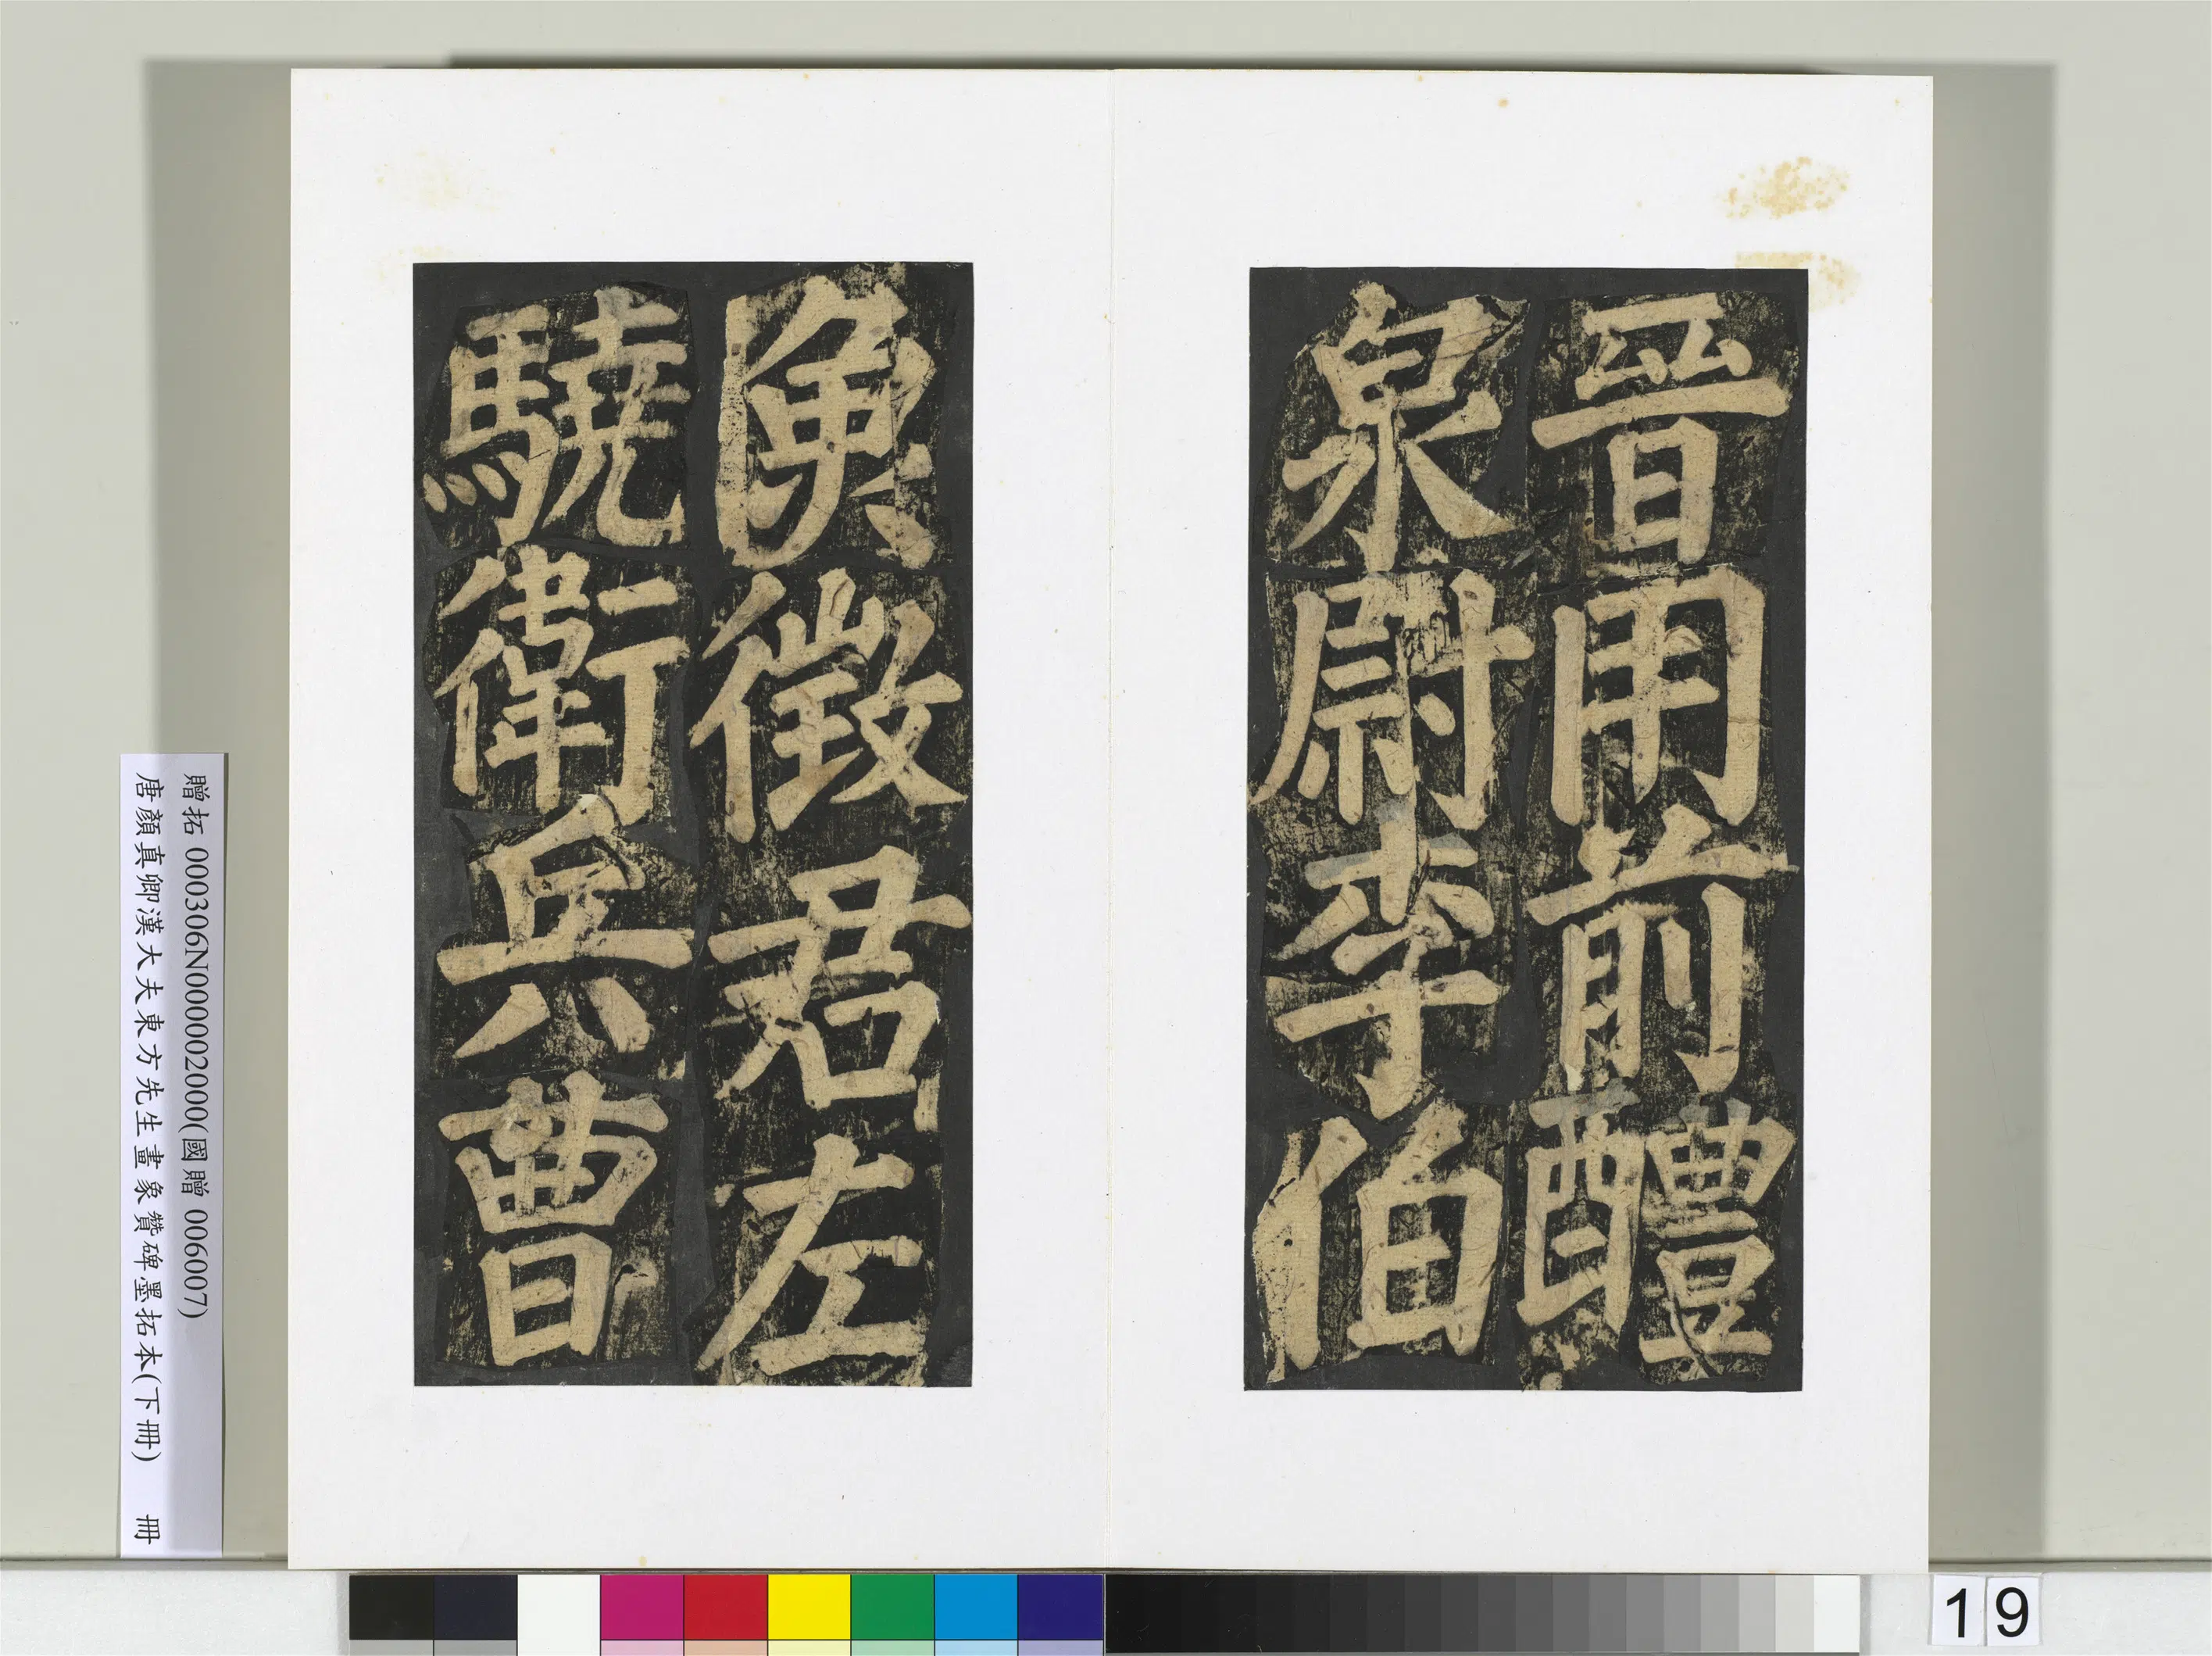 晉用前醴
泉尉李伯
魚徵君左
驍衛兵曹
贈拓 000306N000002000(國贈 006007)
唐顏真卿漢大夫東方先生畫象贊碑墨拓本(下冊) 冊
19